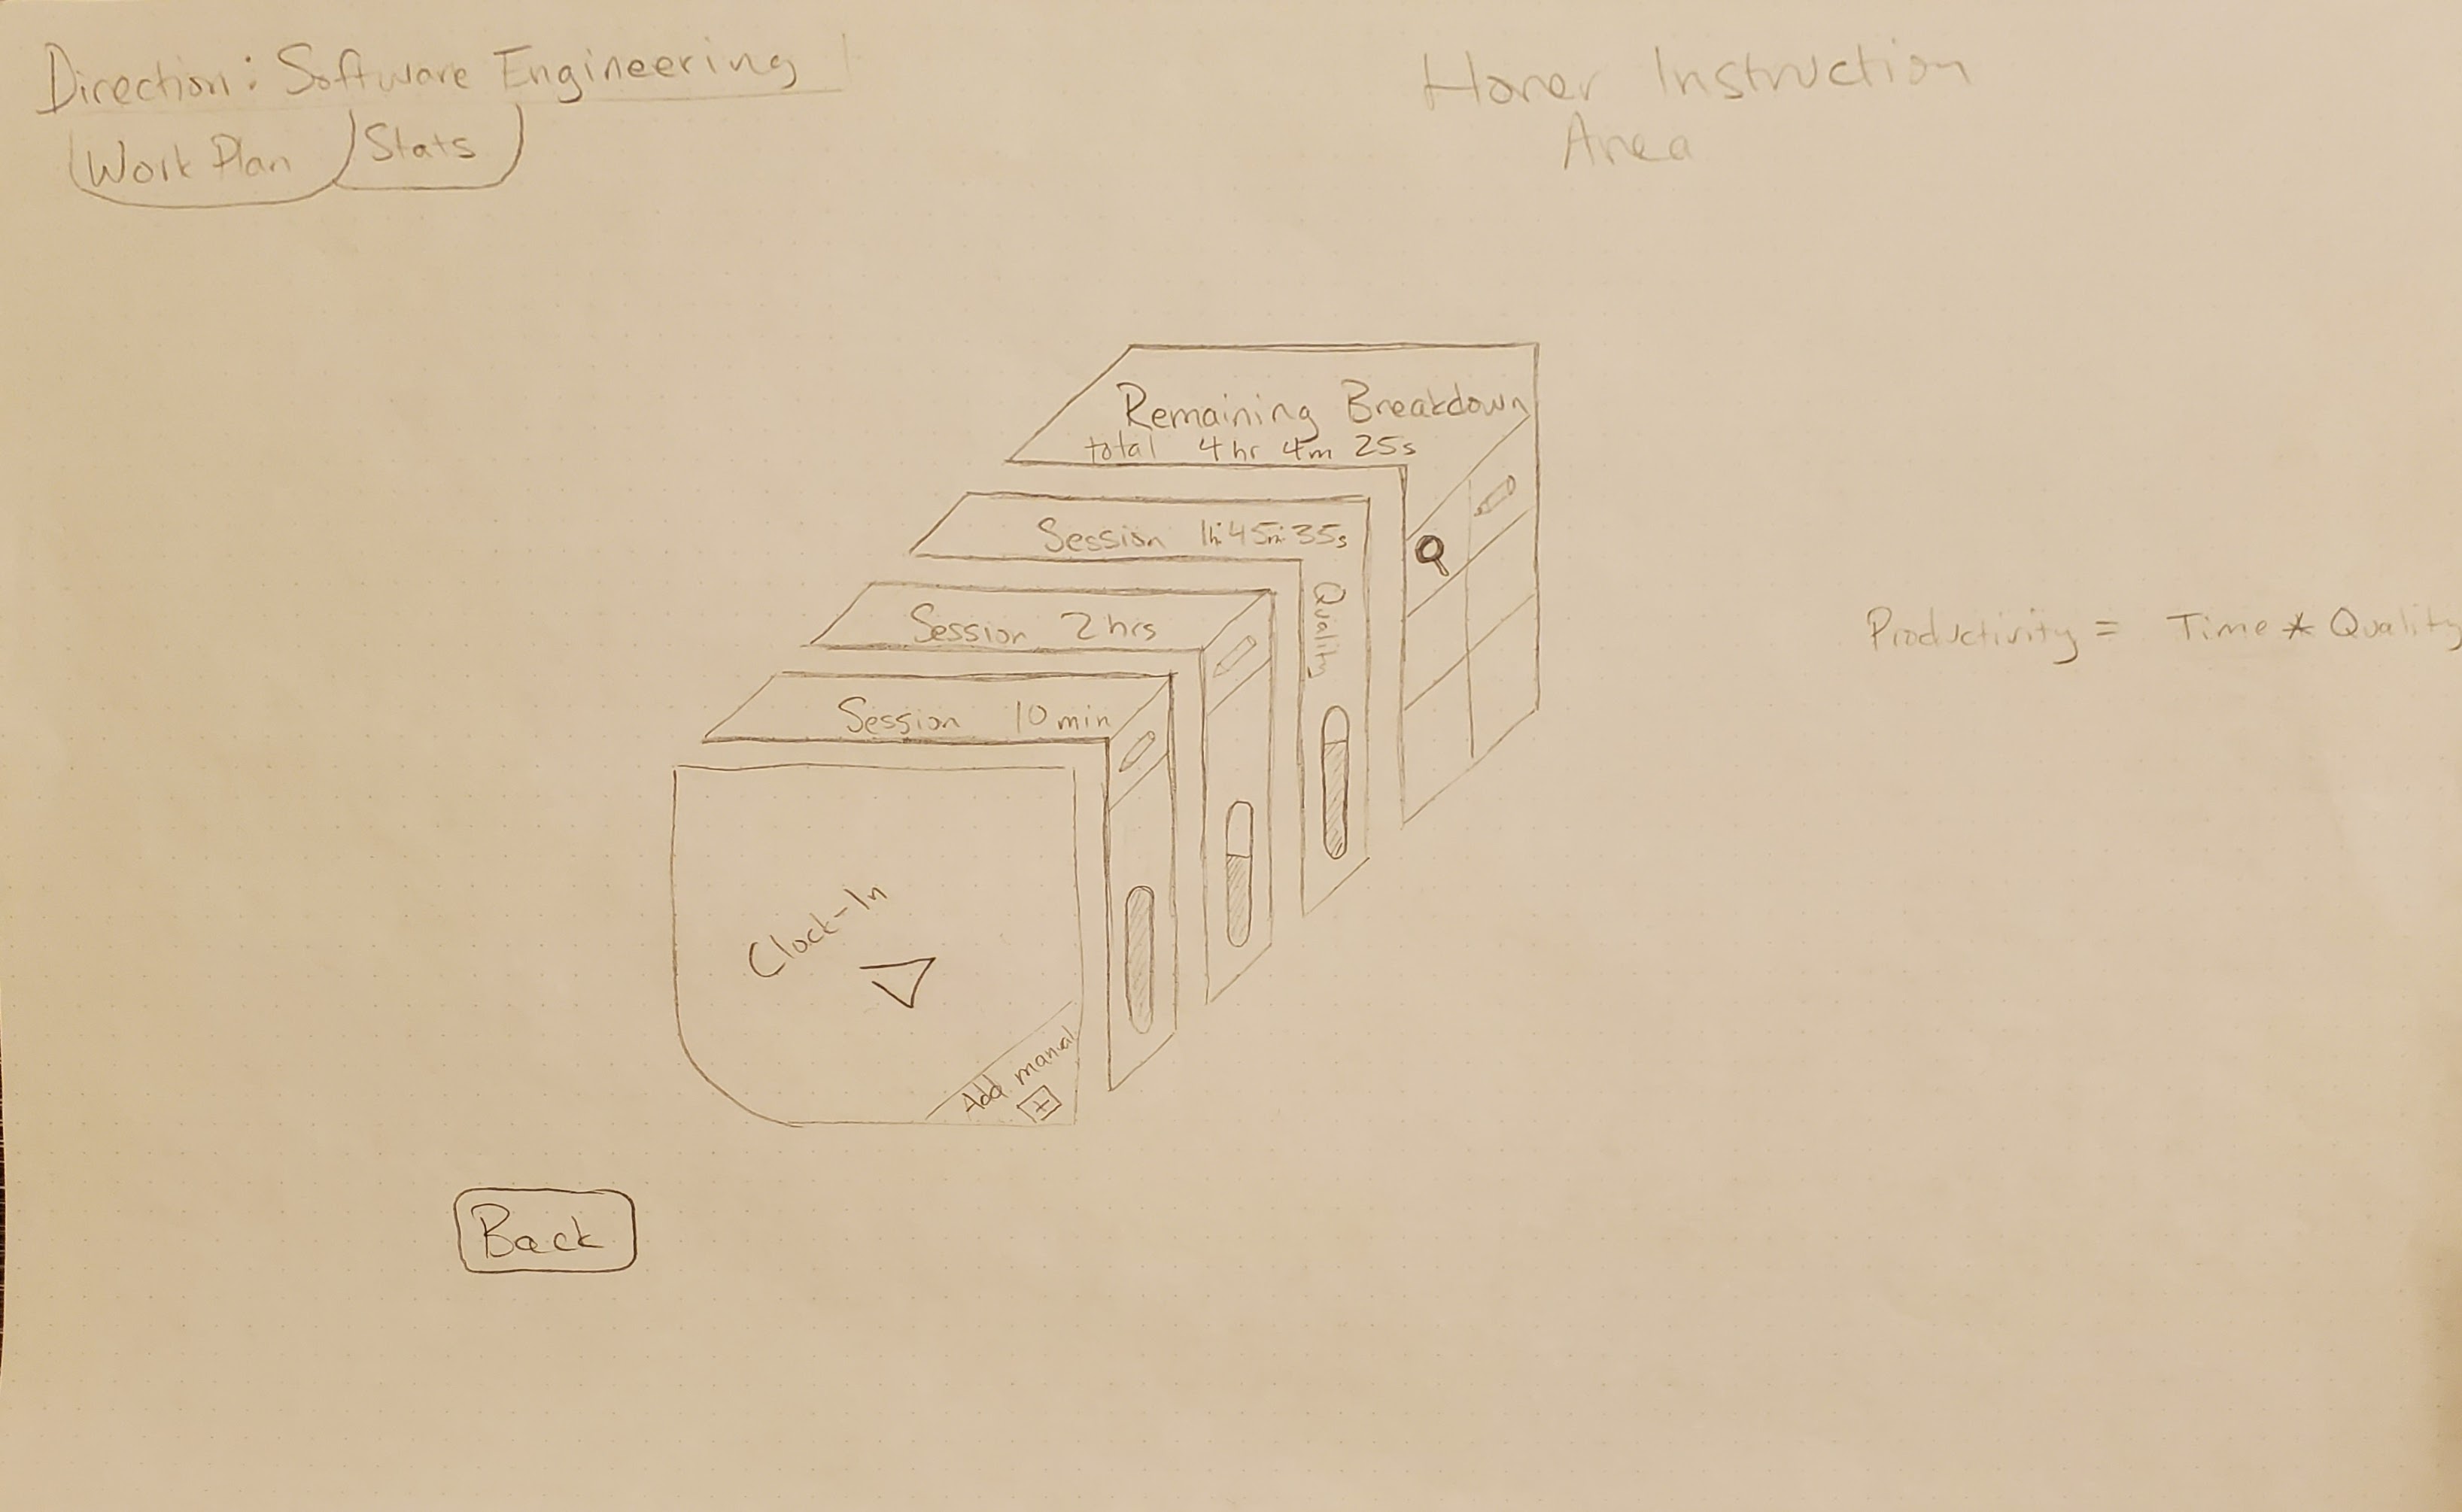 Direction: Software Engineering
Work Plan
Stats
Honer Instruction
Area
Remaining Breakdown
total 4hr 4m 25s
Session 1h:45m:35s
Quality
Session 2hrs
Session 10min
Productivity = Time * Quality
Clock-In
Add manual
Back